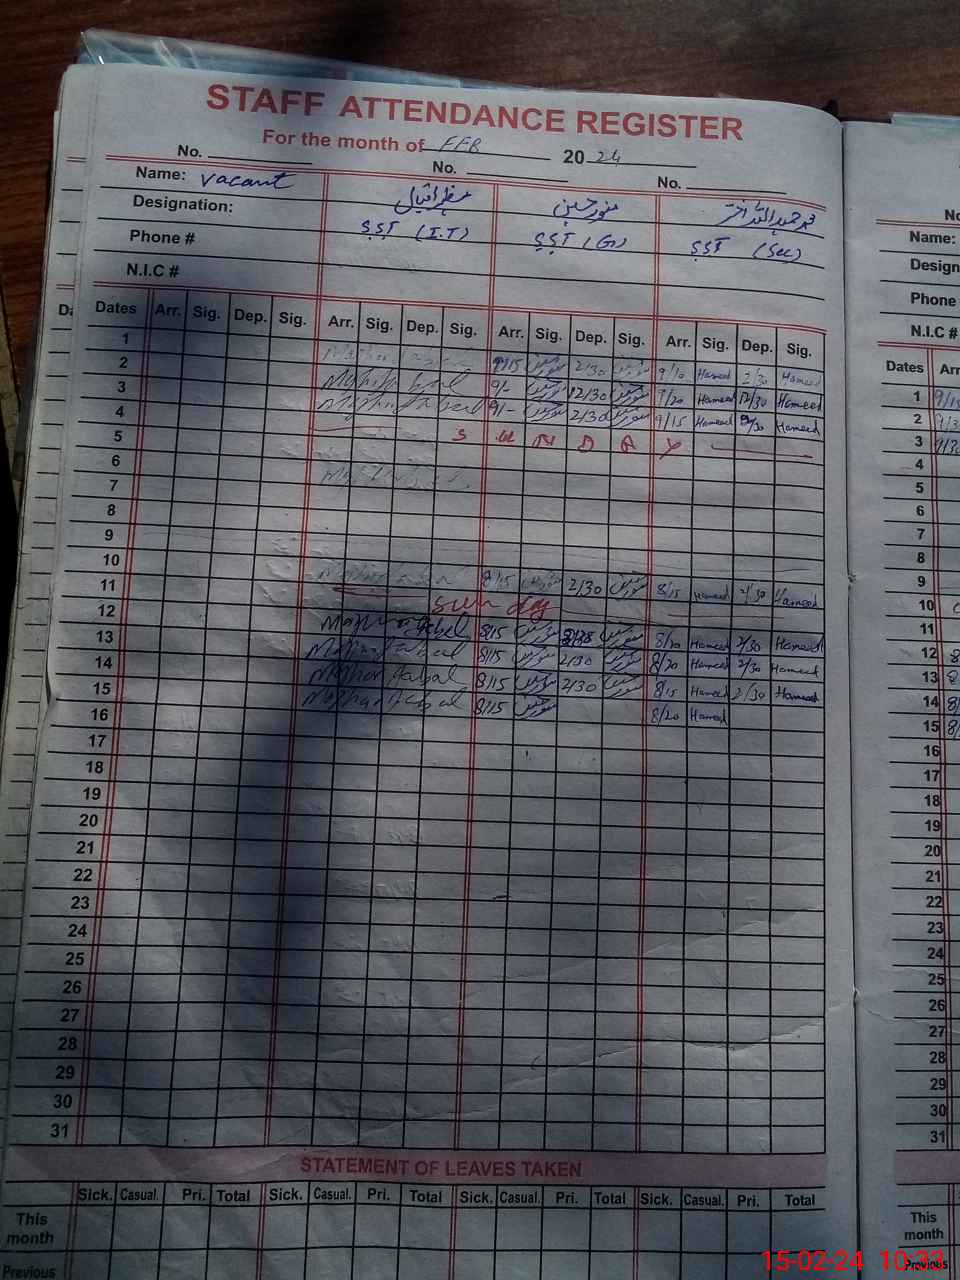 STAFF ATTENDANCE REGISTER
For the month of FEB 2024
No. No. No.
Name: Vacant مظہر اقبال منور حسین محمد حمید اللہ اختر
Designation: S.S.T (I.T) S.S.T (G) S.S.T (Sec)
Phone #
N.I.C #
Dates Arr. Sig. Dep. Sig. Arr. Sig. Dep. Sig. Arr. Sig. Dep. Sig. Arr. Sig. Dep. Sig.
1 9/15 2/30 9/10 Hameed 2/30 Hameed
2 9/- 12/30 9/20 Hameed 12/30 Hameed
3 9/- 2/30 9/15 Hameed 2/30 Hameed
4 S U N D A Y
5
6
7
8
9
10 8/15 2/30 8/15 Hameed 2/30 Hameed
11 Sunday
12 8/15 8/20 Hameed 2/30 Hameed
13 8/15 2/30 8/20 Hameed 2/30 Hameed
14 8/15 2/30 8/15 Hameed 2/30 Hameed
15 8/15 8/20 Hameed
16
17
18
19
20
21
22
23
24
25
26
27
28
29
30
31
STATEMENT OF LEAVES TAKEN
Sick. Casual. Pri. Total Sick. Casual. Pri. Total Sick. Casual. Pri. Total Sick. Casual. Pri. Total
This month
Previous
No
Name:
Design
Phone
N.I.C #
Dates Arr
1 9/15
2
3 9/30
4
5
6
7
8
9
10
11
12 8
13 8
14 8/
15 8/
16
17
18
19
20
21
22
23
24
25
26
27
28
29
30
31
This month
Previous
15-02-24 10:33